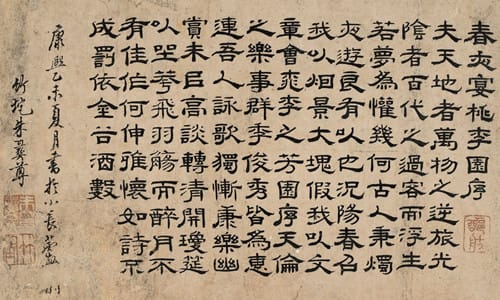 春夜宴桃李園序
夫天地者萬物之逆旅光
陰者百代之過客而浮生
若夢為懽幾何古人秉燭
夜遊良有以也況陽春召
我以烟景大塊假我以文
章會桃李之芳園序天倫
之樂事群季俊秀皆為惠
連吾人詠歌獨慚康樂幽
賞未已高談轉清開瓊筵
以坐華飛羽觴而醉月不
有佳作何伸雅懷如詩不
成罰依金谷酒數
康熙乙未夏月書於小長蘆
竹垞朱彝尊